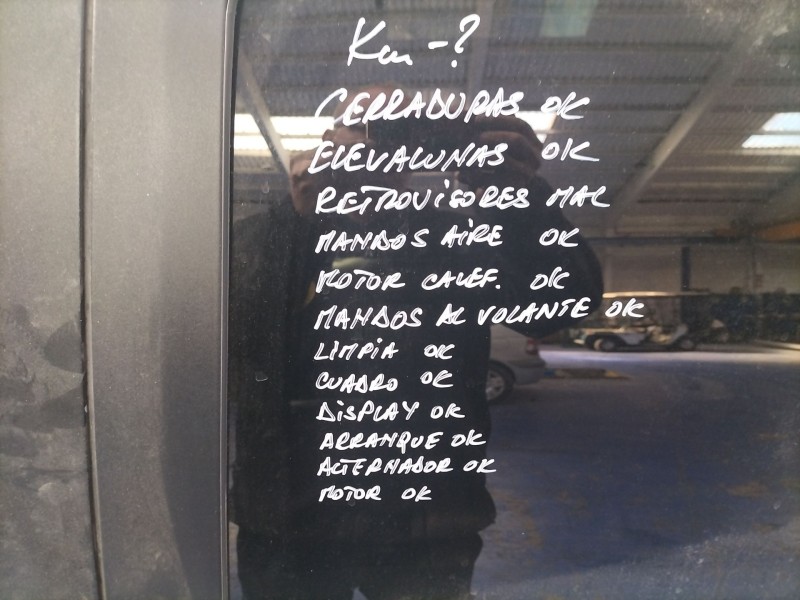 Km -?
CERRADURAS OK
ELEVALUNAS OK
RETROVISORES MAL
MANDOS AIRE OK
MOTOR CALEF. OK
MANDOS AL VOLANTE OK
LIMPIA OK
CUADRO OK
DISPLAY OK
ARRANQUE OK
ALTERNADOR OK
MOTOR OK